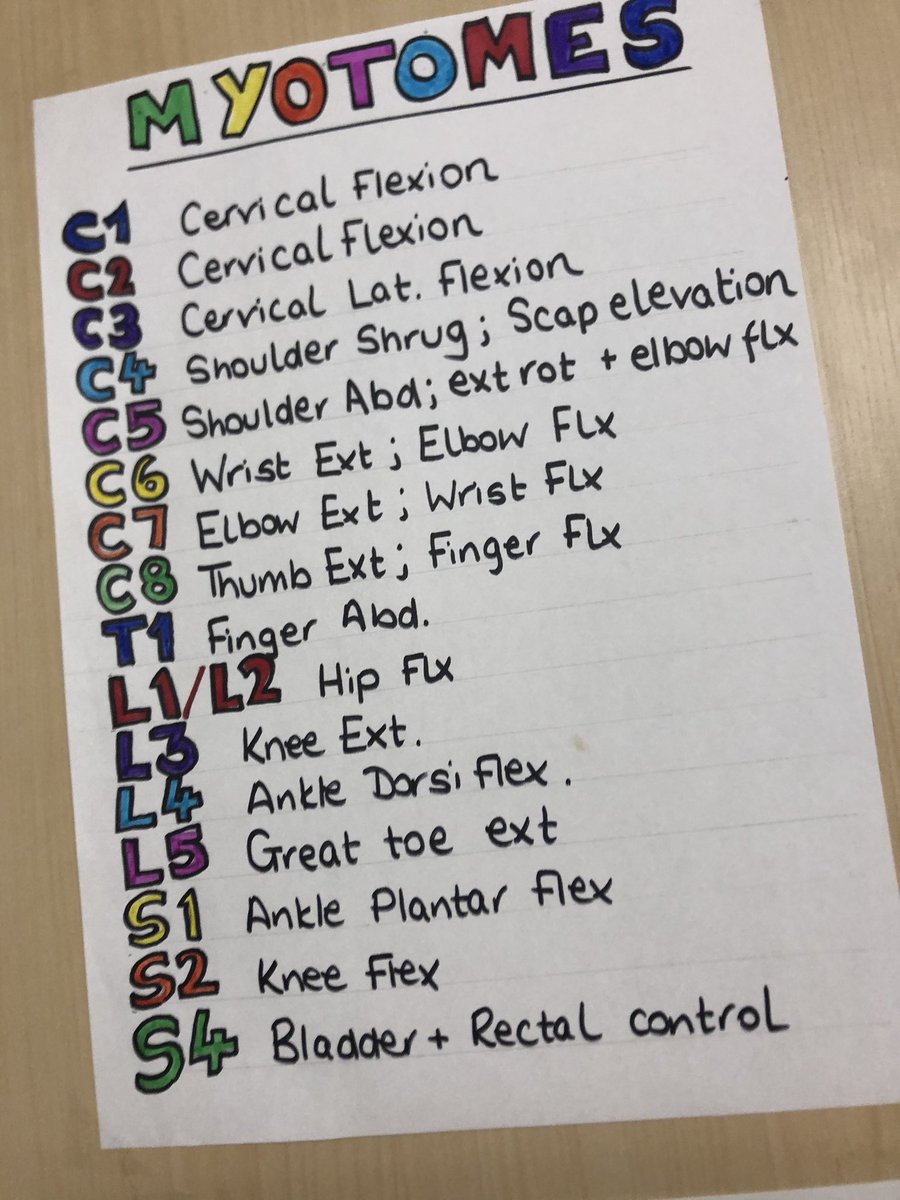 MYOTOMES
C1 Cervical Flexion
C2 Cervical Flexion
C3 Cervical Lat. Flexion
C4 Shoulder Shrug; Scap elevation
C5 Shoulder Abd; ext rot + elbow flx
C6 Wrist Ext; Elbow Flx
C7 Elbow Ext; Wrist Flx
C8 Thumb Ext; Finger Flx
T1 Finger Abd.
L1/L2 Hip Flx
L3 Knee Ext.
L4 Ankle Dorsi flex.
L5 Great toe ext
S1 Ankle Plantar flex
S2 Knee Flex
S4 Bladder + Rectal control